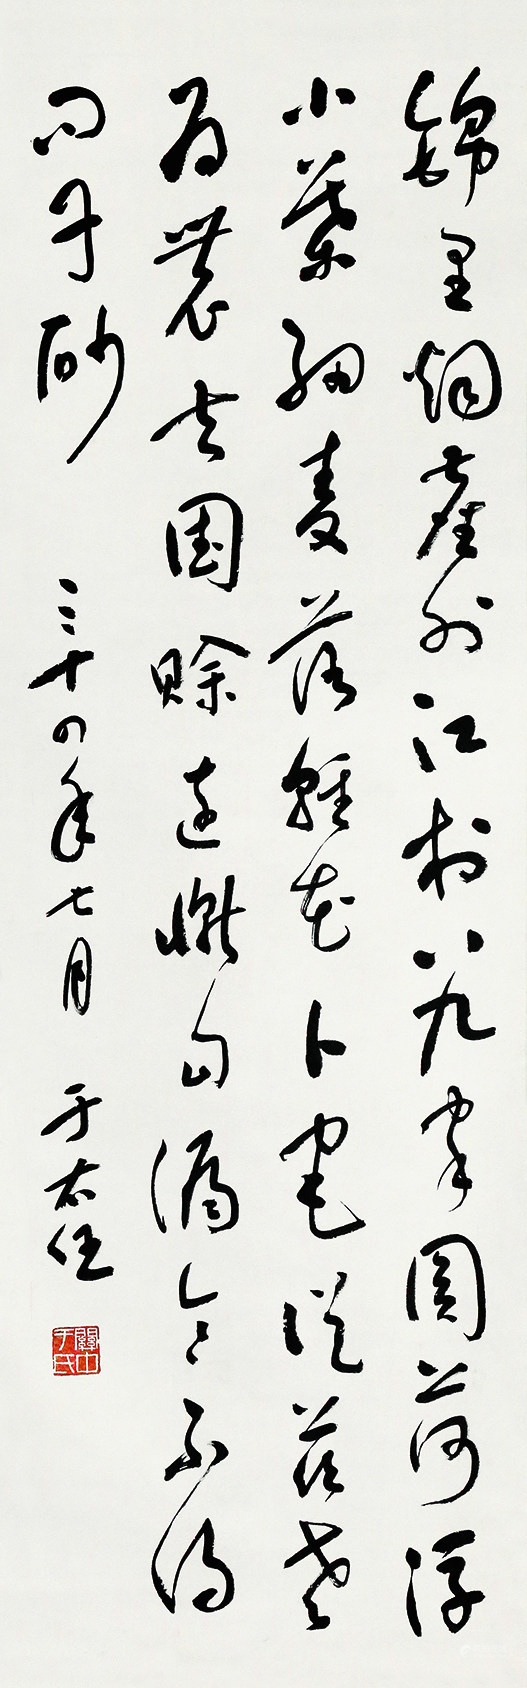 錦里烟塵外江村八九家圓荷浮
小葉細麥落輕花卜宅從茲老
為農去國賒遠慚勾漏令不得
問丹砂 三十四年七月 于右任
關中于氏